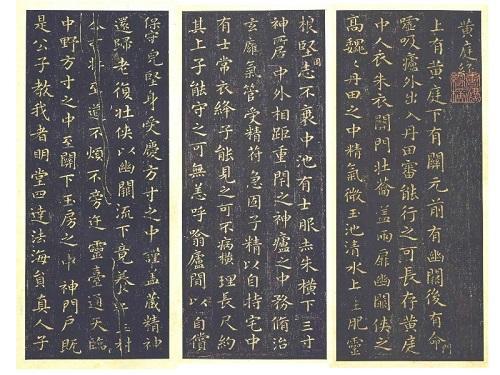 黃庭經
上有黃庭下有關元前有幽闕後有命門
噓吸廬外出入丹田審能行之可長存黃庭
中人衣朱衣關門壯籥蓋兩扉幽闕俠之
高魏魏丹田之中精氣微玉池清水上生肥靈
根堅志不衰中池有士服赤朱橫下三寸
神所居中外相距重閉之神廬之中務脩治
玄膺氣管受精符急固子精以自持宅中
有士常衣絳子能見之可不病橫理長尺約
其上子能守之可無恙呼噏廬間以自償
保守完堅身受慶方寸之中謹蓋藏精神
還歸老復壯俠以幽闕流下竟養
至道不煩不旁迕靈臺通天臨
中野方寸之中至關下玉房之中神門戶既
是公子教我者明堂四達法海員真人子